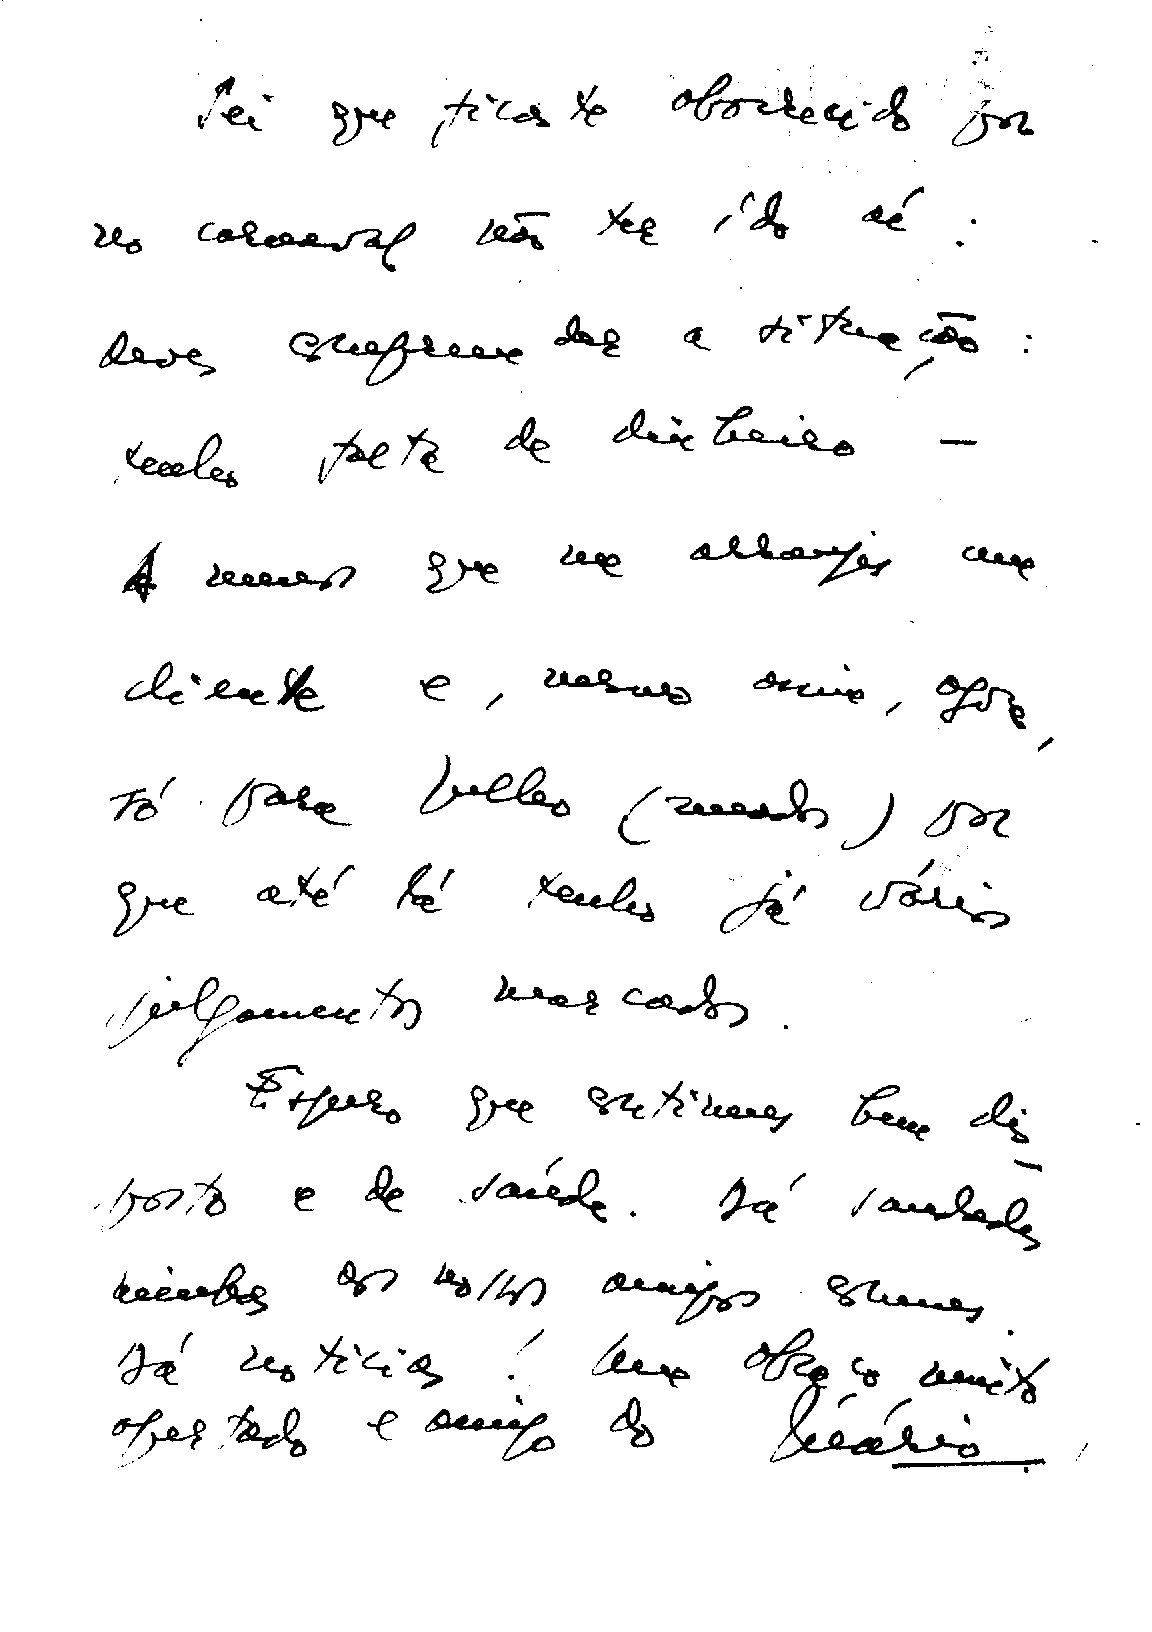 Sei que ficaste aborrecido por
no carnaval não ter ido aí:
deves compreender a situação:
tenho falta de dinheiro —
A menos que me arranjes um
cliente e, mesmo assim, agora,
só para Julho (meados) por
que até lá tenho já vários
julgamentos marcados.
Espero que continues bem dis-
posto e de saúde. Dá saudades
minhas aos nossos amigos comuns.
Dá notícias! Um abraço muito
apertado e amigo do